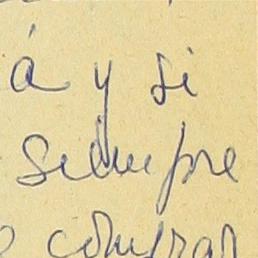 á y si
siempre
comprar